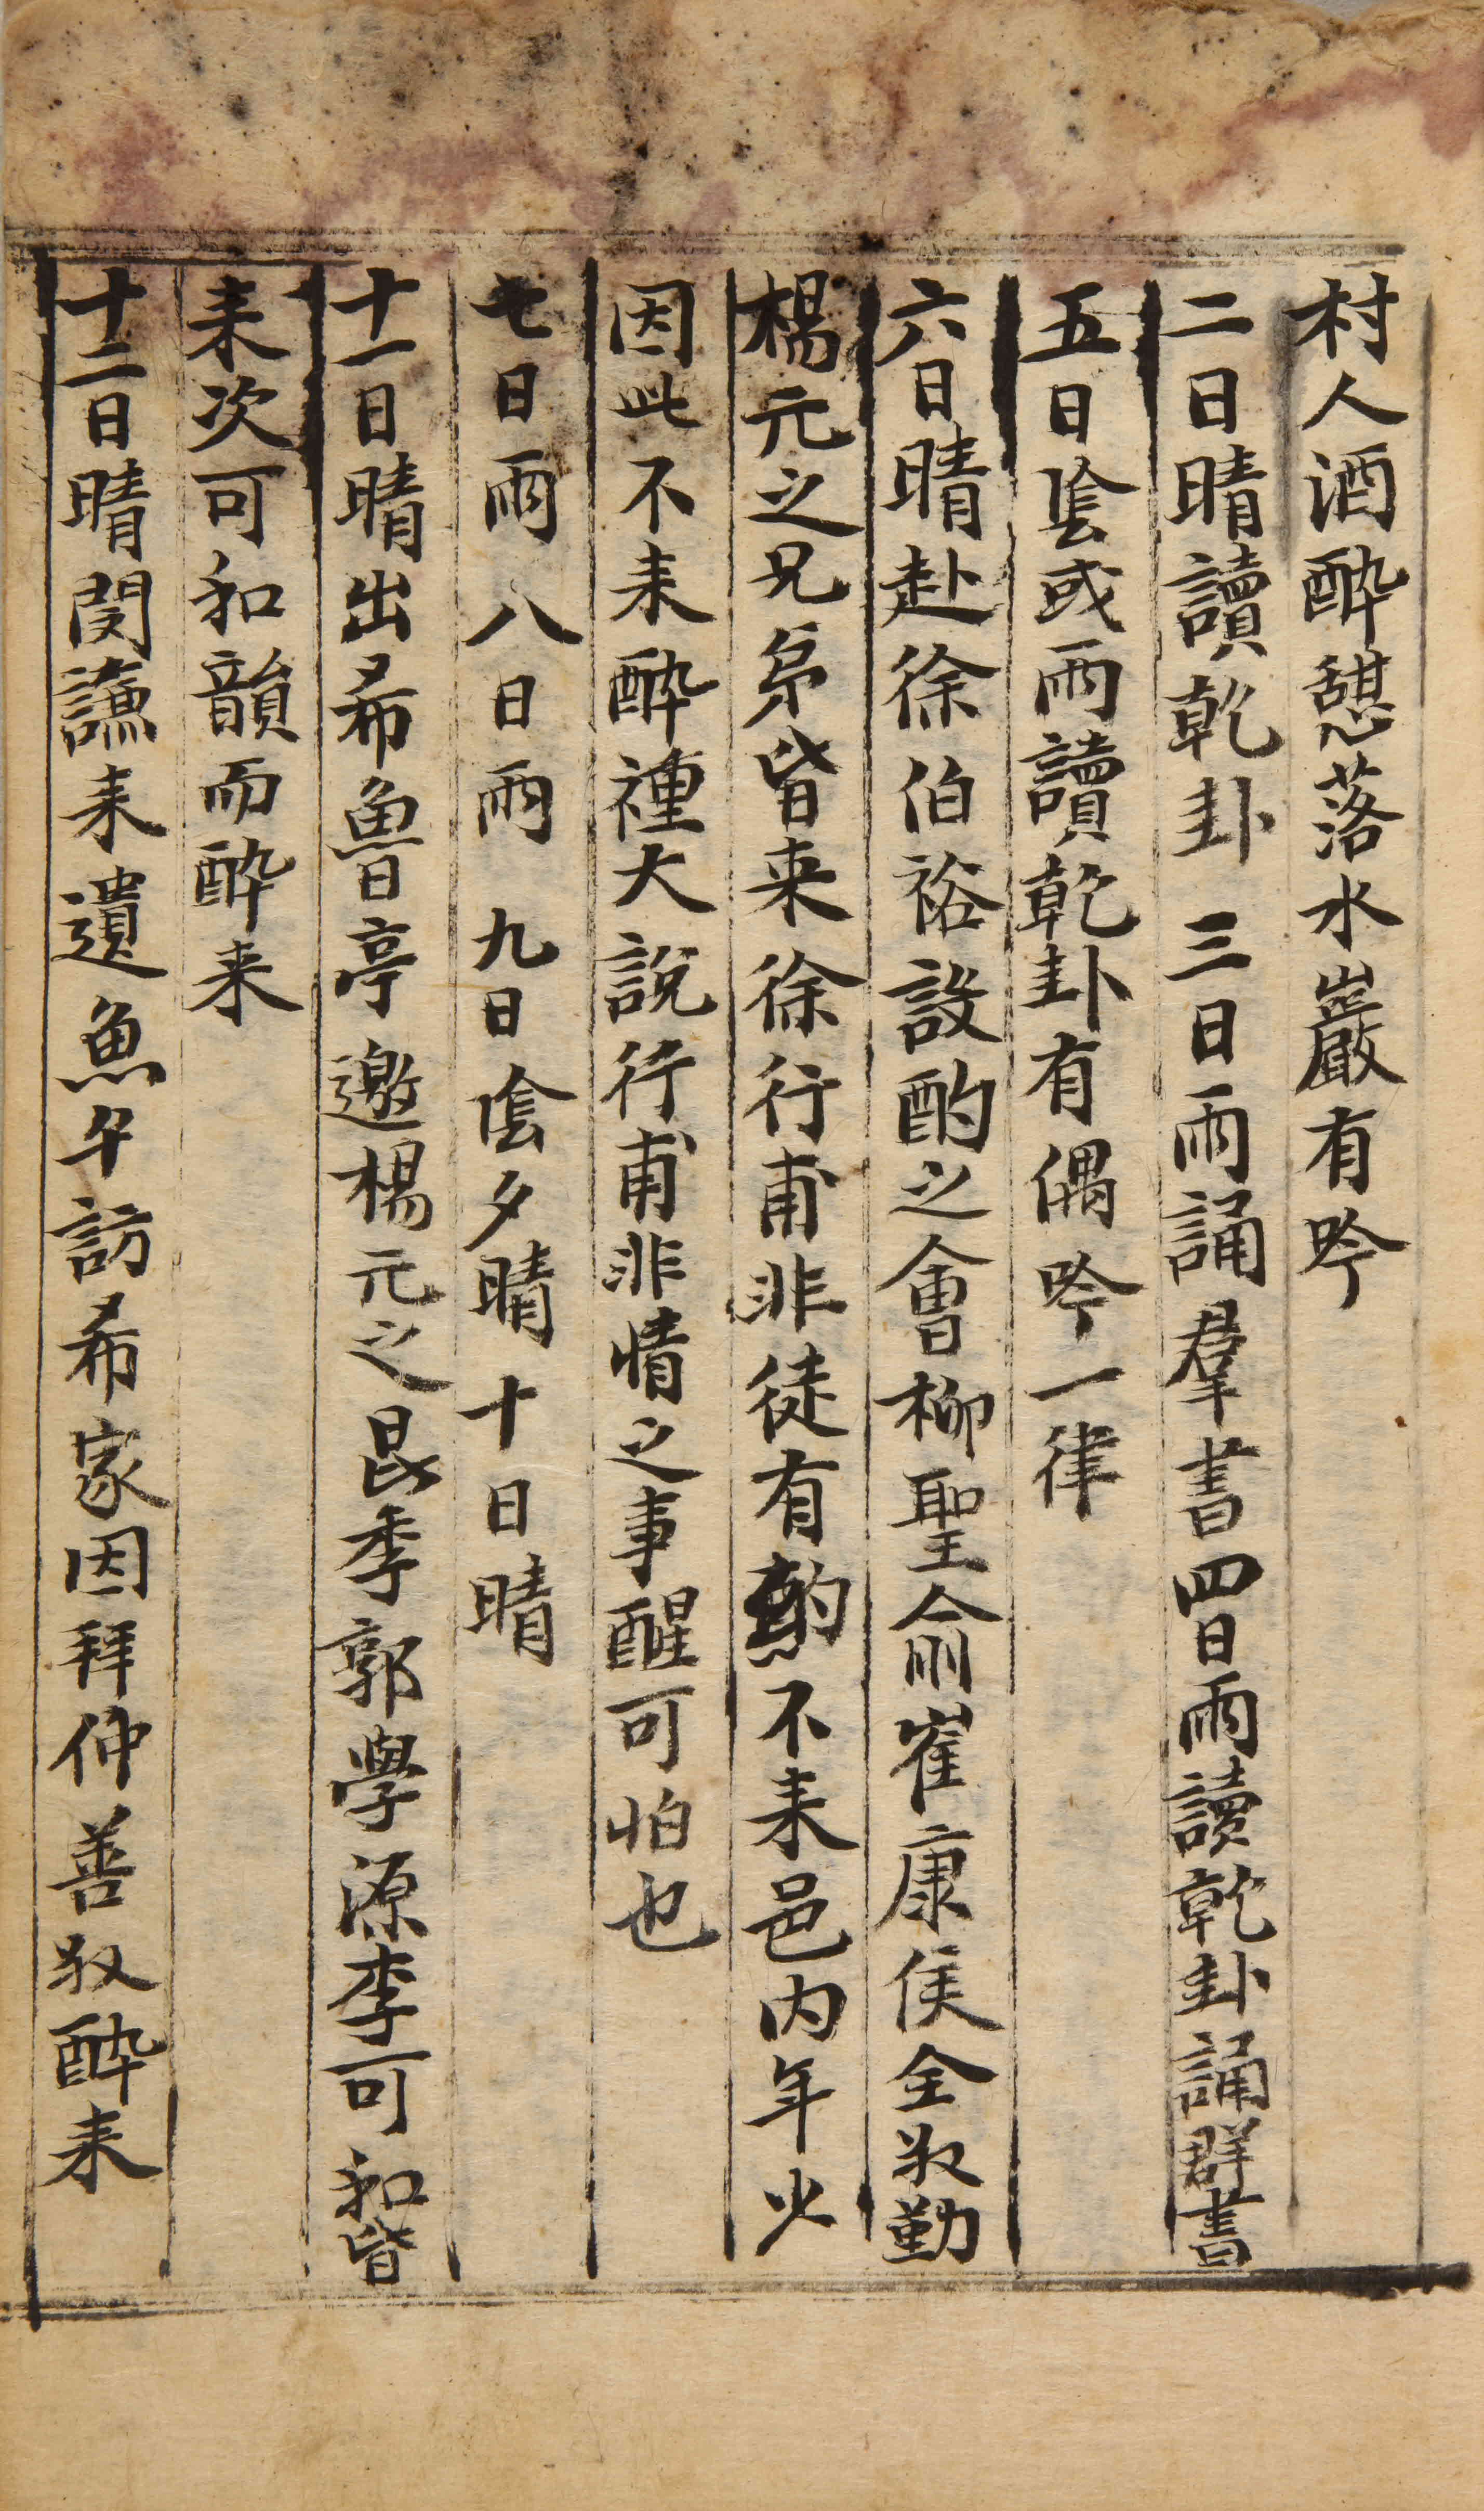 村人酒醉憇落水巖有吟
二日晴讀乾卦 三日雨誦羣書四日雨讀乾卦誦群書
五日陰或雨讀乾卦有偶吟一律
六日晴赴徐伯裕設酌之會柳聖俞崔康侯全叔勤
楊元之兄弟皆来徐行甫非徒有酌不来邑内年少
因此不来醉裡大説行甫非情之事醒可怕也
七日雨八日雨 九日陰夕晴十日晴
十一日晴出希魯亭邀楊元之昆季郭學源李可和皆
来次可和韻而醉来
十二日晴閔謙来遺魚午訪希家因拜仲善叔醉来